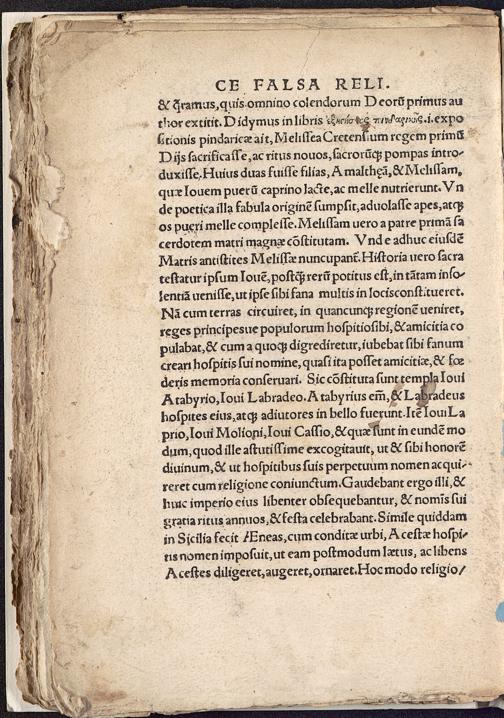 CE FALSA RELI.
& q̃ramus, quis omnino colendorum Deorũ primus au
thor extitit. Didymus in libris ἐξηγήσεως πινδαρικῆς .i. expo
sitionis pindaricæ ait, Melissea Cretensium regem primũ
Dijs sacrificasse, ac ritus nouos, sacrorũq; pompas intro-
duxisse. Huius duas fuisse filias, Amaltheã, & Melissam,
quæ Iouem puerũ caprino lacte, ac melle nutrierunt. Vn
de poetica illa fabula originẽ sumpsit, aduolasse apes, atq;
os pueri melle complesse. Melissam uero a patre primã sa
cerdotem matri magnæ cõstitutam. Vnde adhuc eiusdẽ
Matris antistites Melissæ nuncupant̃. Historia uero sacra
testatur ipsum Iouẽ, postq̃ rerũ potitus est, in tãtam inso-
lentiã uenisse, ut ipse sibi fana multis in locis constitueret.
Nã cum terras circuiret, in quancunq; regionẽ ueniret,
reges principesue populorum hospitio sibi, & amicitia co
pulabat, & cum a quoq; digrediretur, iubebat sibi fanum
creari hospitis sui nomine, quasi ita posset amicitiæ, & fœ
deris memoria conseruari. Sic cõstituta sunt templa Ioui
Atabyrio, Ioui Labradeo. Atabyrius em̃, & Labradeus
hospites eius, atq; adiutores in bello fuerunt. Itẽ Ioui La
prio, Ioui Molioni, Ioui Cassio, & quæ sunt in eundẽ mo
dum, quod ille astutissime excogitauit, ut & sibi honorẽ
diuinum, & ut hospitibus suis perpetuum nomen acqui-
reret cum religione coniunctum. Gaudebant ergo illi, &
huic imperio eius libenter obsequebantur, & nomĩs sui
gratia ritus annuos, & festa celebrabant. Simile quiddam
in Sicilia fecit Æneas, cum conditæ urbi, Acestæ hospi-
tis nomen imposuit, ut eam postmodum lætus, ac libens
Acestes diligeret, augeret, ornaret. Hoc modo religio/